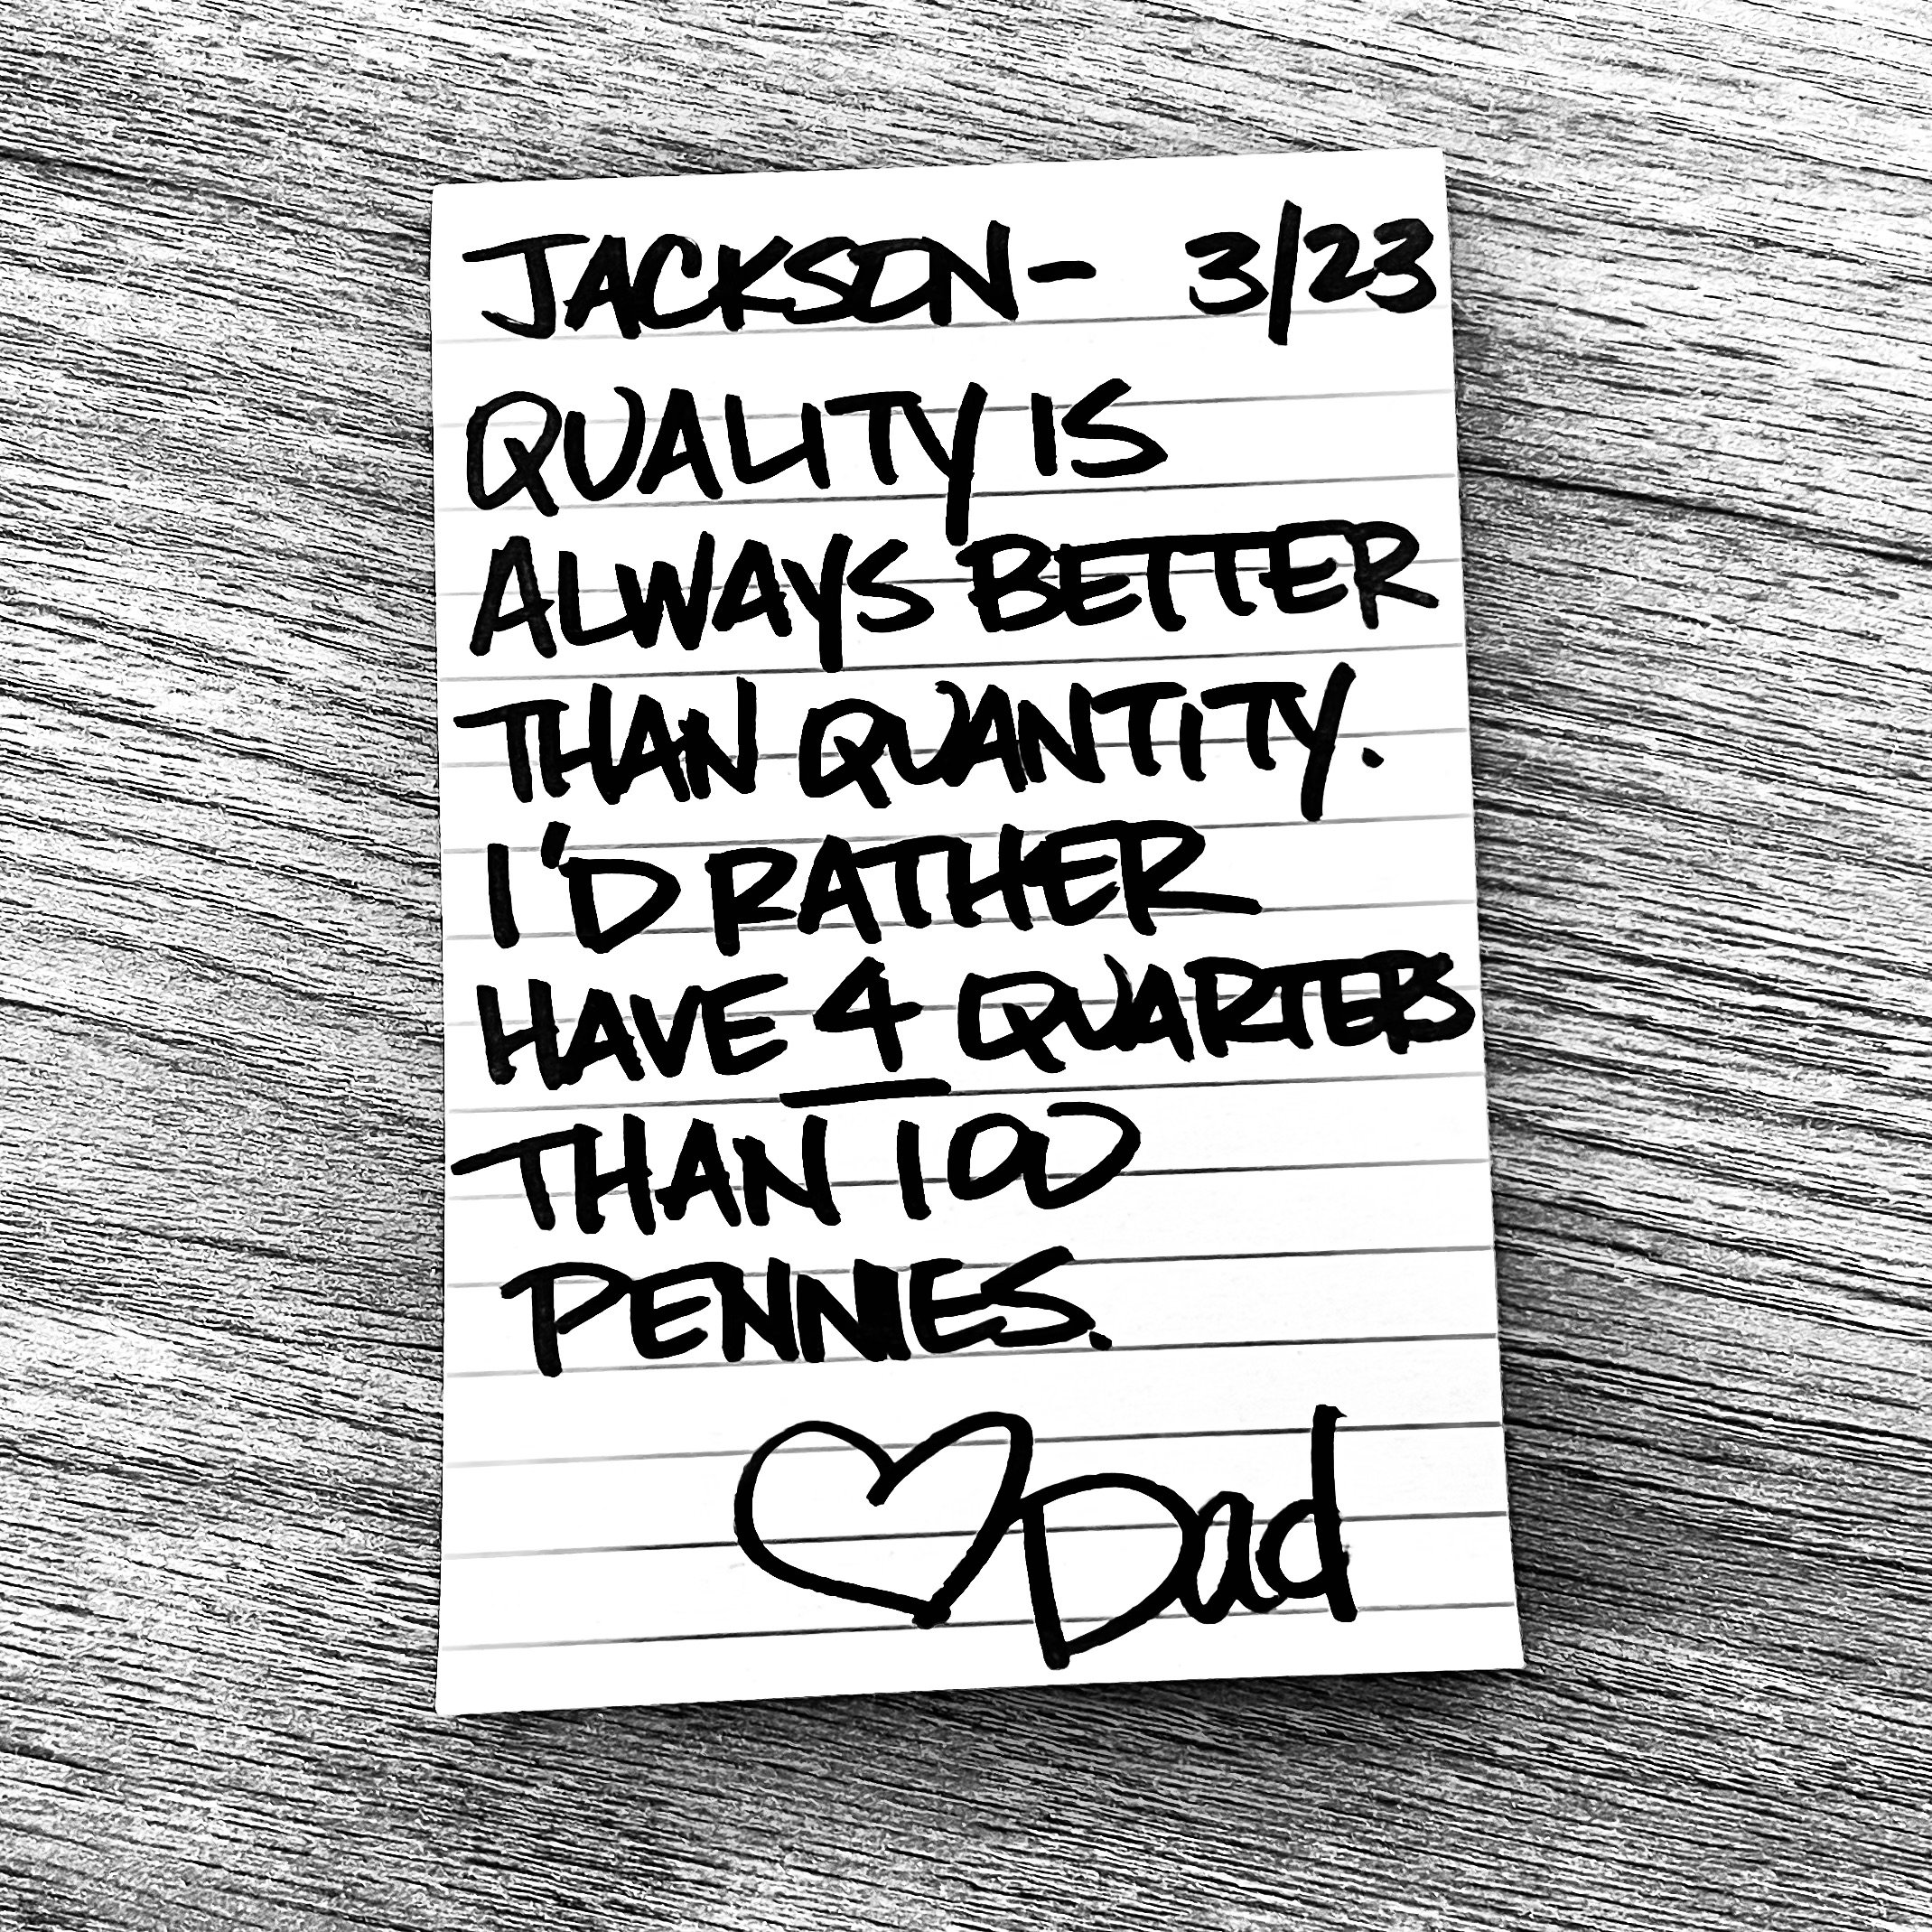 JACKSON- 3/23
QUALITY IS
ALWAYS BETTER
THAN QUANTITY.
I'D RATHER
HAVE 4 QUARTERS
THAN 100
PENNIES.
♡Dad